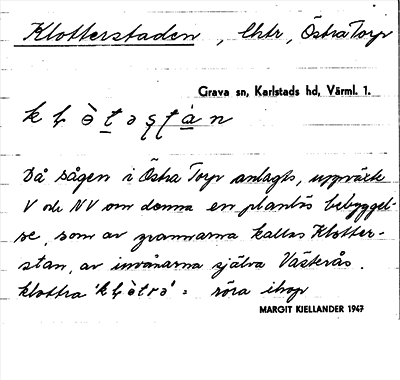 Klotterstaden, Chtr, Östra Torp
Grava sn, Karlstads hd, Värml. 1.
Då sågen i Östra Torp anlagts, uppväxte
V och NV om denna en planlös bebyggel-
se, som av grannarna kallas Klotter-
stan, av invånarna själva Västerås.
klottra = röra ihop
MARGIT KIELLANDER 1947